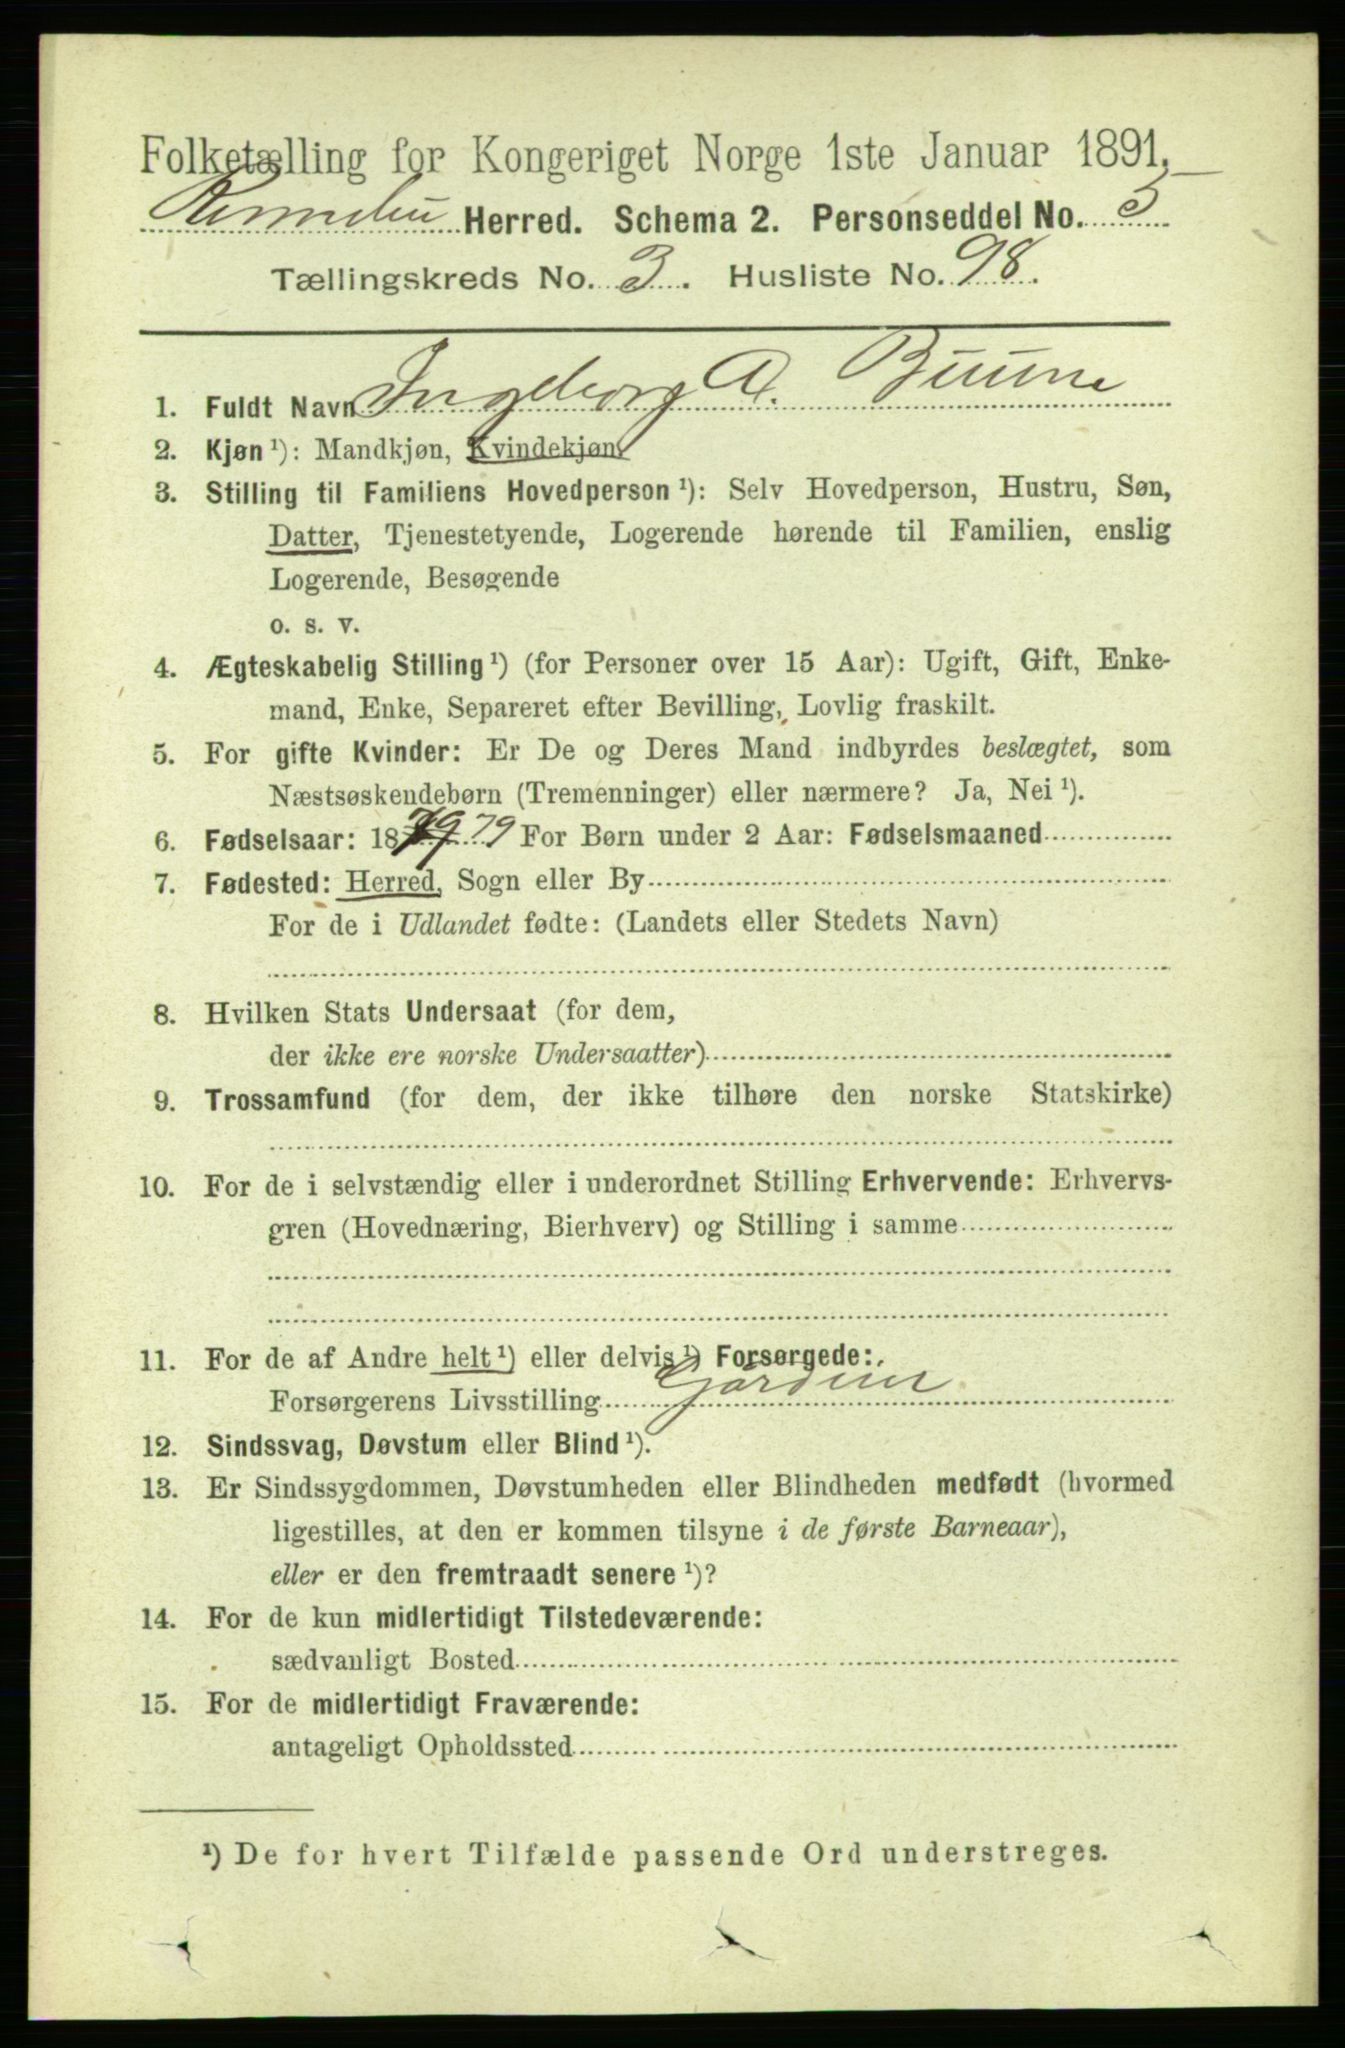 Folketælling for Kongeriget Norge 1ste Januar 1891.
Rennebu Herred. Schema 2. Personseddel No. 5
Tællingskreds No. 3. Husliste No. 98.
1. Fuldt Navn Ingeborg A. Buune
2. Kjøn ¹): Mandkjøn, Kvindekjøn
3. Stilling til Familiens Hovedperson ¹): Selv Hovedperson, Hustru, Søn,
Datter, Tjenestetyende, Logerende hørende til Familien, enslig
Logerende, Besøgende
o. s. v.
4. Ægteskabelig Stilling ¹) (for Personer over 15 Aar): Ugift, Gift, Enke-
mand, Enke, Separeret efter Bevilling, Lovlig fraskilt.
5. For gifte Kvinder: Er De og Deres Mand indbyrdes beslægtet, som
Næstsøskendebørn (Tremenninger) eller nærmere? Ja, Nei ¹).
6. Fødselsaar: 1879 79 For Børn under 2 Aar: Fødselsmaaned
7. Fødested: Herred, Sogn eller By
For de i Udlandet fødte: (Landets eller Stedets Navn)
8. Hvilken Stats Undersaat (for dem,
der ikke ere norske Undersaatter)
9. Trossamfund (for dem, der ikke tilhøre den norske Statskirke)
10. For de i selvstændig eller i underordnet Stilling Erhvervende: Erhvervs-
gren (Hovednæring, Bierhverv) og Stilling i samme
11. For de af Andre helt ¹) eller delvis ¹) Forsørgede:
Forsørgerens Livsstilling
12. Sindssvag, Døvstum eller Blind ¹).
13. Er Sindssygdommen, Døvstumheden eller Blindheden medfødt (hvormed
ligestilles, at den er kommen tilsyne i de første Barneaar),
eller er den fremtraadt senere ¹)?
14. For de kun midlertidigt Tilstedeværende:
sædvanligt Bosted
15. For de midlertidigt Fraværende:
antageligt Opholdssted
¹) De for hvert Tilfælde passende Ord understreges.